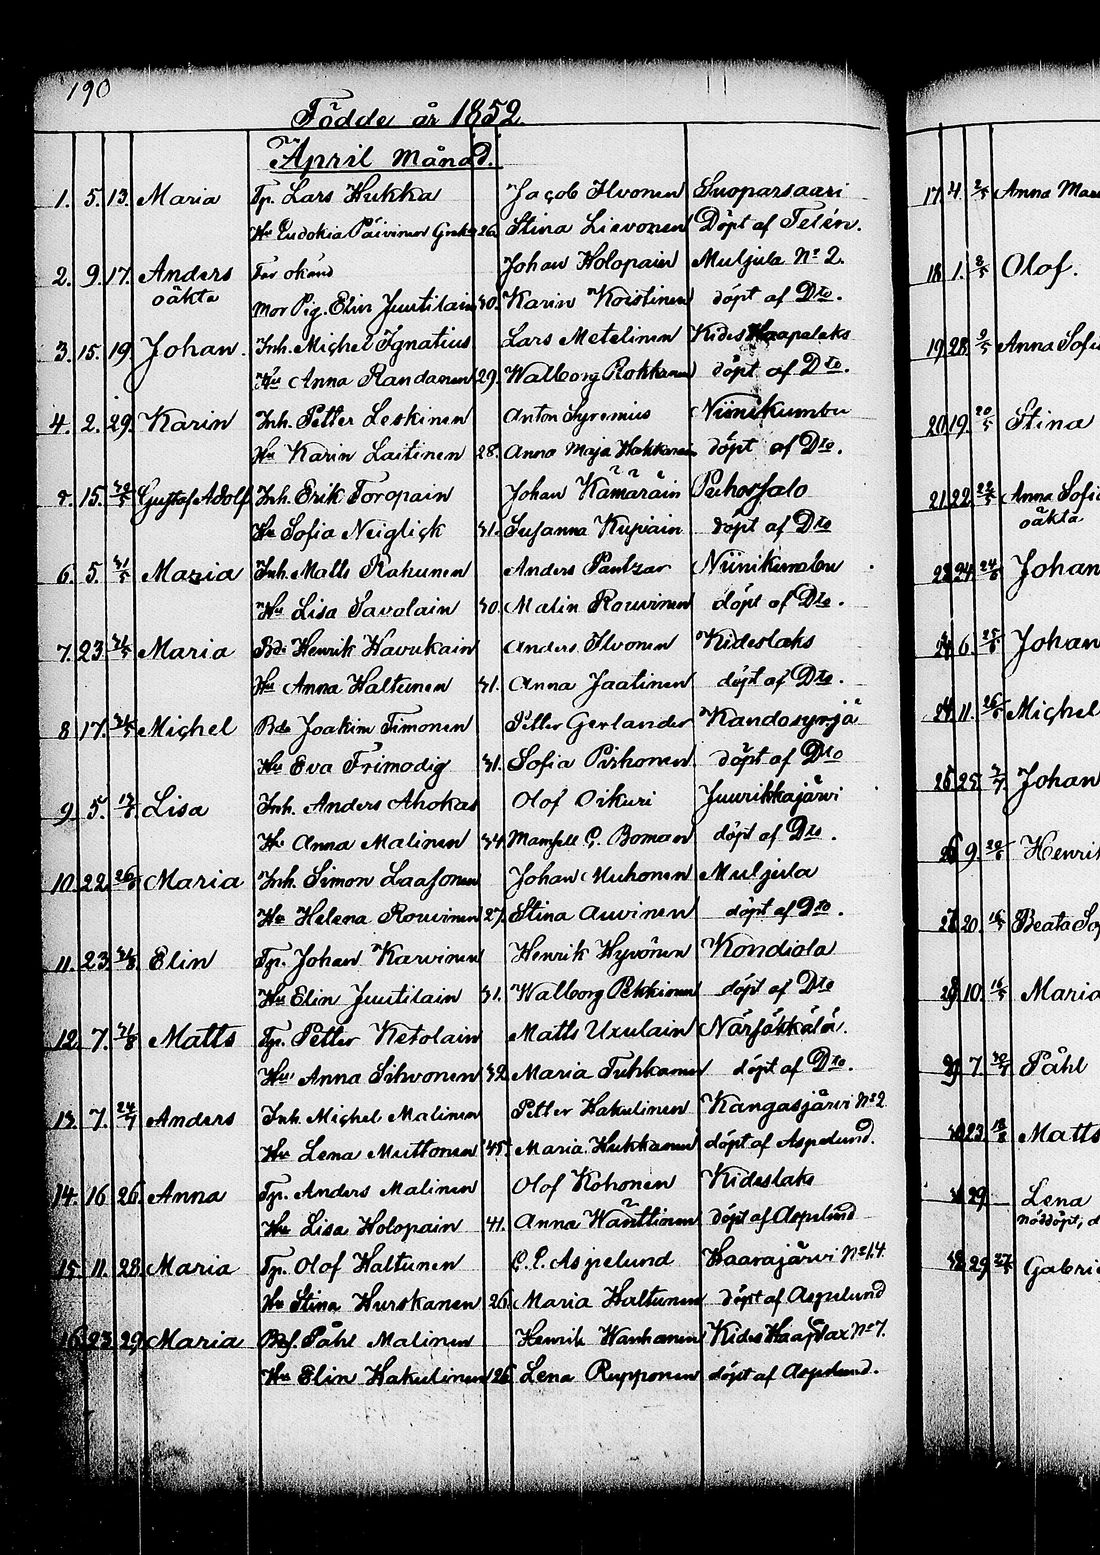 190
Födde år 1852.
April Månad.
1. 5. 13. Maria Tp. Lars Hukka Jacob Ilvonen Suoparsaari
Hu Eudokia Päivinen Greka 26. Stina Lievonen Döpt af Telén.
2. 9. 17. Anders Far okänd Johan Holopain Muljula No 2.
oäkta Mor Pig. Elin Juutilain 30. Karin Koistinen döpt af Dto.
3. 15. 19. Johan. Inh. Michel Ignatius Lars Metelinen Kides Haapeleks
Hu Anna Randanen 29. Walborg Rokkanen döpt af Dto.
4. 2. 29. Karin Inh. Petter Leskinen Anton Syrenius Niinikumbu
Hu Karin Laitinen 28. Anna Maja Hakkarain döpt af Dto.
15. 30/5 Gustaf Adolf Inh. Erik Toropain Johan Kämäräin Puhossalo
Hu Sofia Neiglick 31. Susanna Kupiain döpt af Dto
6. 5. 31/5 Maria Inh. Matts Rahunen Anders Pantzar Niinikumbu
Hu Lisa Savolain 30. Malin Rouvinen döpt af Dto.
7. 23. 31/5 Maria Bd. Henrik Havukain Anders Ilvonen Kideslaks
Hu Anna Haltunen 31. Anna Jaatinen döpt af Dto.
8. 17. Michel Bd. Joakim Timonen Petter Gerlander Kandosyrjä
Hu Eva Frimodig 31. Sofia Pirhonen döpt af Dto
9. 5. Lisa Inh. Anders Ahokas Olof Oikuri Juurikkajärvi
Hu Anna Malinen 34. Mamsell G. Boman döpt af Dto.
10. 22. 26/6 Maria Inh. Simon Laasonen Johan Muhonen Muljula
Hu Helena Rouvinen 27. Stina Auvinen döpt af Dto.
11. 23. Elin Tp. Johan Karvinen Henrik Hyvönen Kondiola
Hu Elin Juutilain 31. Walborg Pekkinen döpt af Dto
12. 7. Matts Tp. Petter Ketolain Matts Uxulain Närsäkkälä.
Hu Anna Sihvonen 32. Maria Tuhkanen döpt af Dto.
13. 7. 24/7 Anders Inh. Michel Malinen Petter Hakulinen Kangasjärvi No 2
Hu Lena Muttonen 45. Maria Hukkanen döpt af Aspelund.
14. 16 26. Anna Tp. Anders Malinen Olof Kohonen Kideslaks
Hu Lisa Holopain 41. Anna Wänttinen döpt af Aspelund
15. 11. 28. Maria Tp. Olof Haltunen C. E. Aspelund Haarajärvi No 14.
Hu Stina Hurskanen 26. Maria Haltunen döpt af Aspelund
16. 23. 29. Maria Bef. Påhl Malinen Henrik Wanhanen Kides Haaplax No 7.
Hu Elin Hakulinen 26. Lena Rupponen döpt af Aspelund.
17. 4. Anna
18. 1. Olof.
19. 28. Anna Sofia
20. 19. 20/5 Stina
21. 22. Anna Sofia
oäkta
24. Johan
6. 25/6 Johan
11. Michel
25. 25. Johan
9. Henrik
20. Beata
10. Maria
7. Påhl
23. Matts
29. Lena
nöddöpt,
29. Gabri